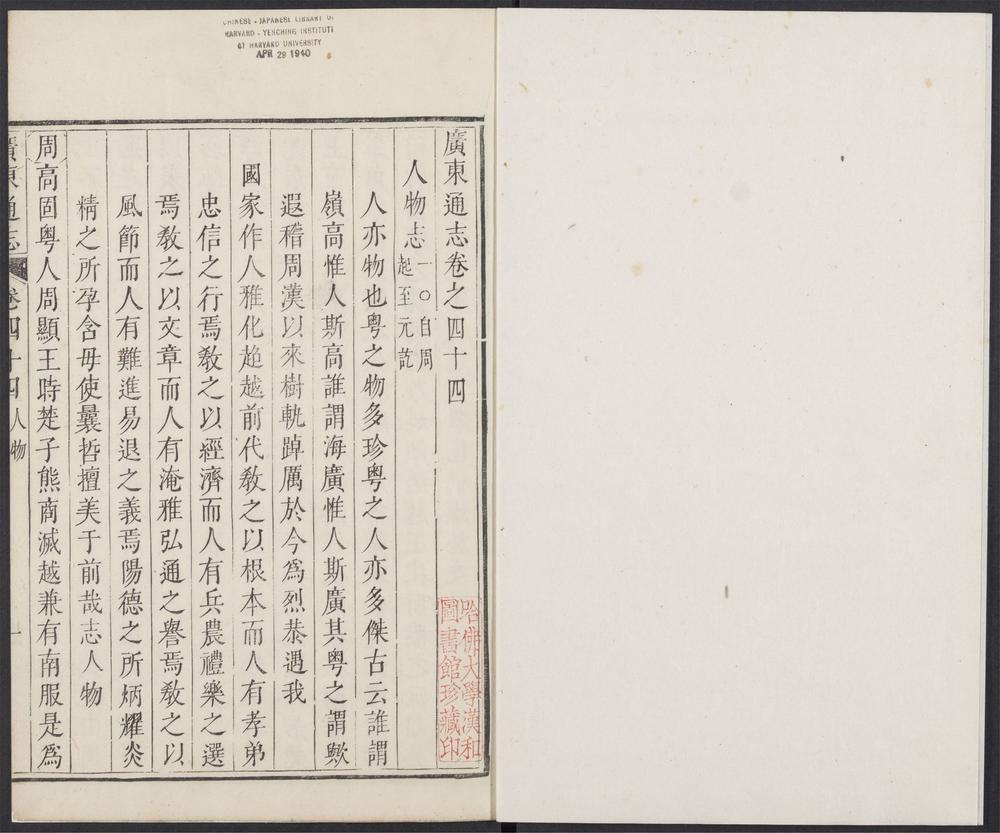 CHINESE - JAPANESE LIBRARY OF
HARVARD - YENCHING INSTITUTE
AT HARVARD UNIVERSITY
APR 29 1940
廣東通志卷之四十四
人物志一〇自周起至元訖
人亦物也粵之物多珍粵之人亦多傑古云誰謂
嶺高惟人斯高誰謂海廣惟人斯廣其粵之謂歟
遐稽周漢以來樹軌踔厲於今爲烈恭遇我
國家作人雅化趍越前代敎之以根本而人有孝弟
忠信之行焉敎之以經濟而人有兵農禮樂之選
焉敎之以文章而人有淹雅弘通之譽焉敎之以
風節而人有難進易退之義焉陽德之所炳耀炎
精之所孕含毋使曩哲擅美于前哉志人物
周高固粵人周顯王時楚子熊商滅越兼有南服是爲
廣東通志 卷四十四 人物 一
哈佛大學漢和
圖書館珍藏印